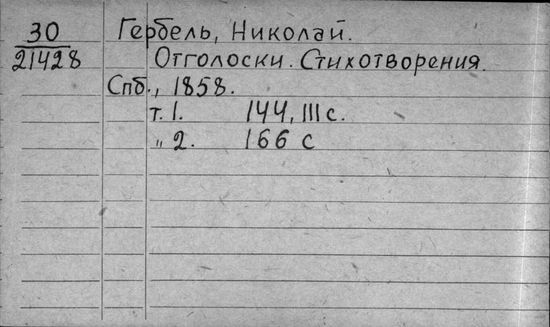 30 Гербель, Николай.
21428 Отголоски. Стихотворения.
Спб., 1858.
т. 1. 144, III с.
„ 2. 166 с